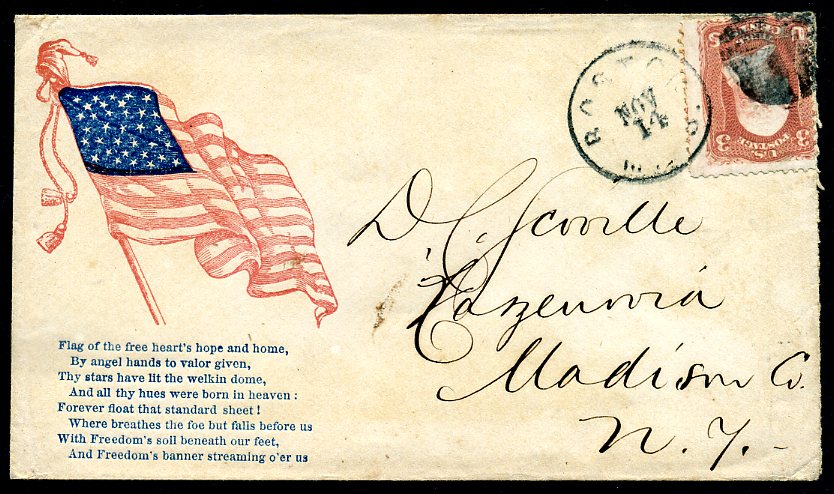 Flag of the free heart's hope and home,
By angel hands to valor given,
Thy stars have lit the welkin dome,
And all thy hues were born in heaven :
Forever float that standard sheet !
Where breathes the foe but falls before us
With Freedom's soil beneath our feet,
And Freedom's banner streaming o'er us
BOSTON
NOV
14
U.S. POSTAGE
3 3
D. C. Scoville
Cazenovia
Madison Co.
N. Y.